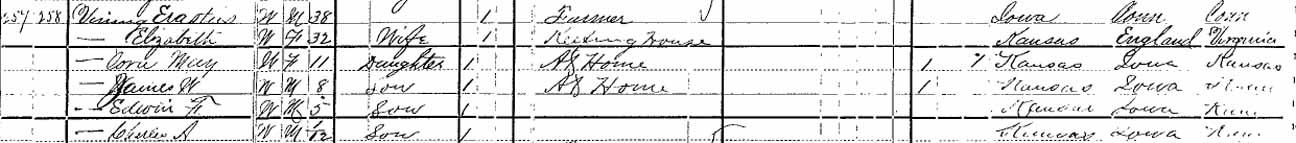 257 258 Vining Erastus W M 38 1 Farmer Iowa Conn Conn
— Elizabeth W F 32 Wife 1 Keeping House Kansas England Virginia
— Cora May W F 11 Daughter 1 At Home 1 Kansas Iowa Kansas
— James W W M 8 Son 1 At Home 1 Kansas Iowa
— Edwin F. W M 5 Son 1 Kansas Iowa Kan
— Charles A W M /12 Son 1 Kansas Iowa Kan